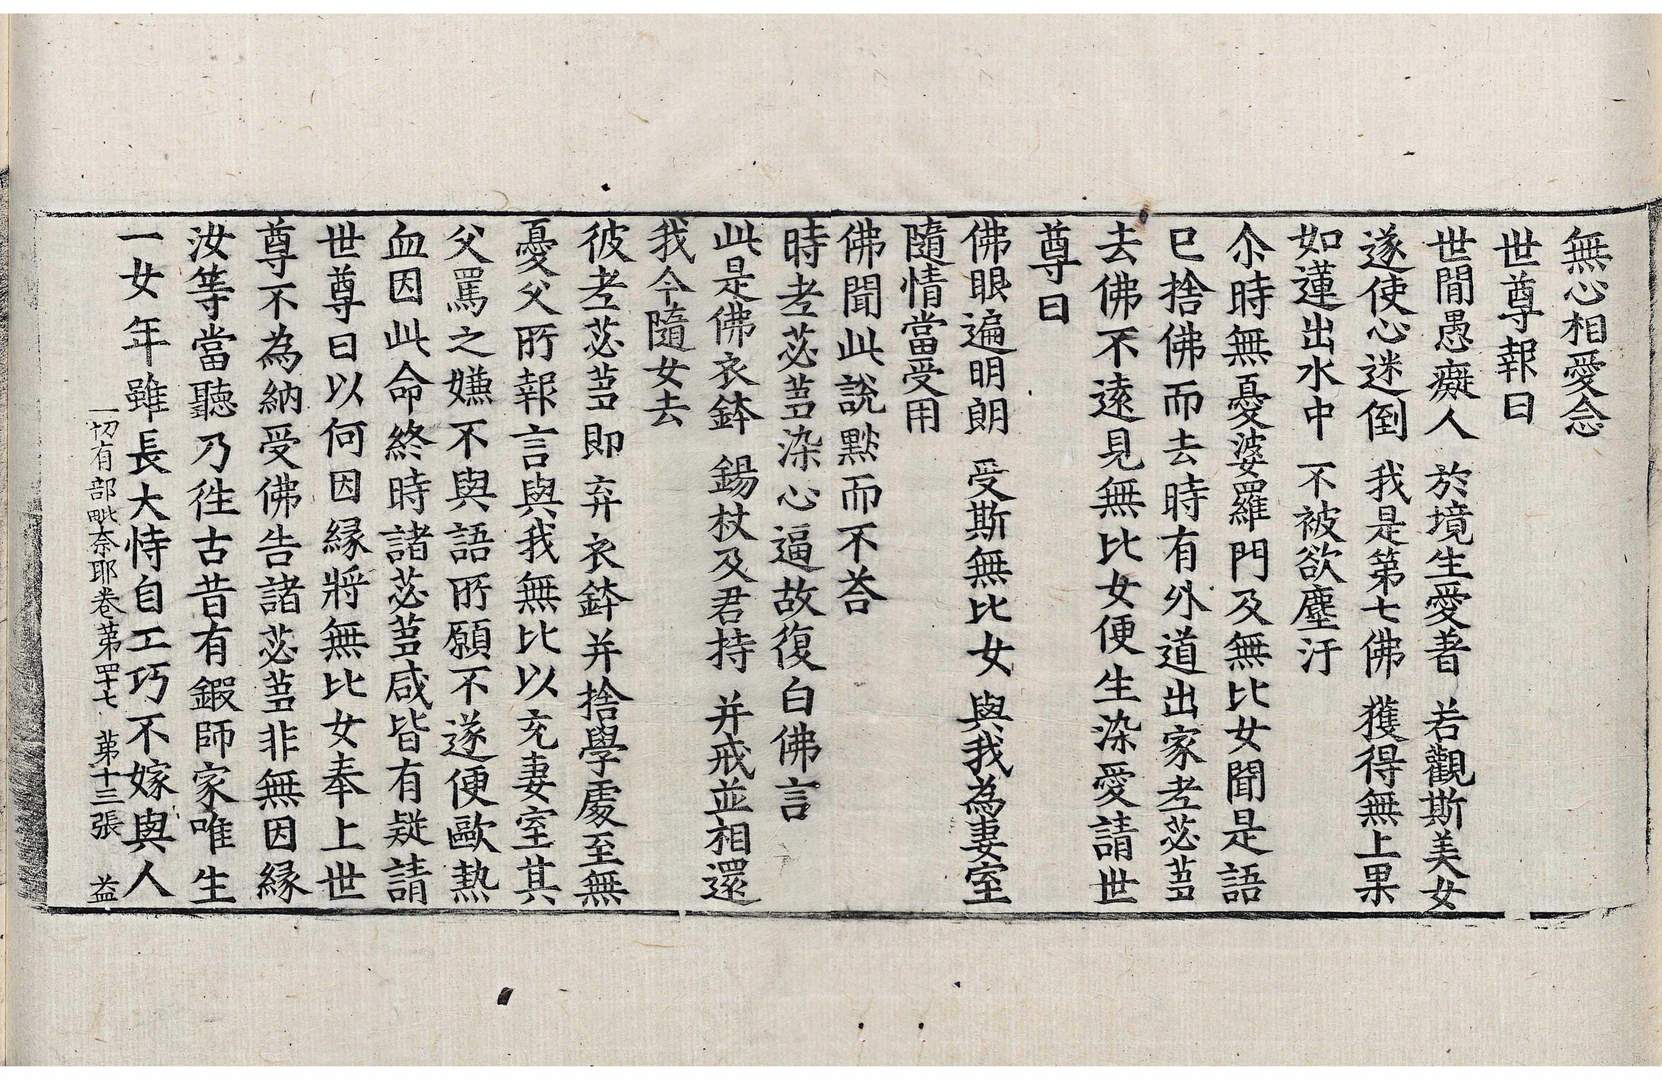 無心相愛念
世尊報曰
世間愚癡人　於境生愛著　若觀斯美女
遂使心迷倒　我是第七佛　獲得無上果
如蓮出水中　不被欲塵汙
尒時無憂婆羅門及無比女聞是語
已捨佛而去時有外道出家老苾蒭
去佛不遠見無比女便生染愛請世
尊曰
佛眼遍明朗　受斯無比女　與我為妻室
隨情當受用
佛聞此說默而不荅
時老苾蒭染心逼故復白佛言
此是佛衣鉢　錫杖及君持　并戒並相還
我今隨女去
彼老苾蒭即弃衣鉢并捨學處至無
憂父所報言與我無比以充妻室其
父罵之嫌不與語所願不遂便歐熱
血因此命終時諸苾蒭咸皆有疑請
世尊曰以何因緣將無比女奉上世
尊不為納受佛告諸苾蒭非無因緣
汝等當聽乃徃古昔有鍜師家唯生
一女年雖長大恃自工巧不嫁與人
一切有部毗奈耶卷苐四十七　苐十三張　益